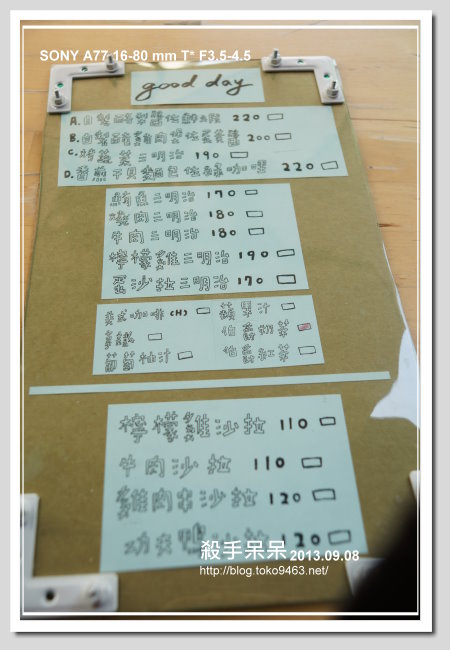 SONY A77 16-80 mm T* F3.5-4.5
good day
A. 自製 220
B. 自製 雞肉 200
C. 蔬菜三明治 190
D. 香蒜 貝麵包佐 咖哩 220
鮪魚三明治 170
燒肉三明治 180
牛肉三明治 180
檸檬雞三明治 190
蛋沙拉三明治 170
美式咖啡 (H) 蘋果汁
伯爵奶茶
葡萄柚汁 伯爵紅茶
檸檬雞沙拉 110
牛肉沙拉 110
雞肉串沙拉 120
功夫鴨沙拉 120
殺手呆呆 2013.09.08
http://blog.toko9463.net/